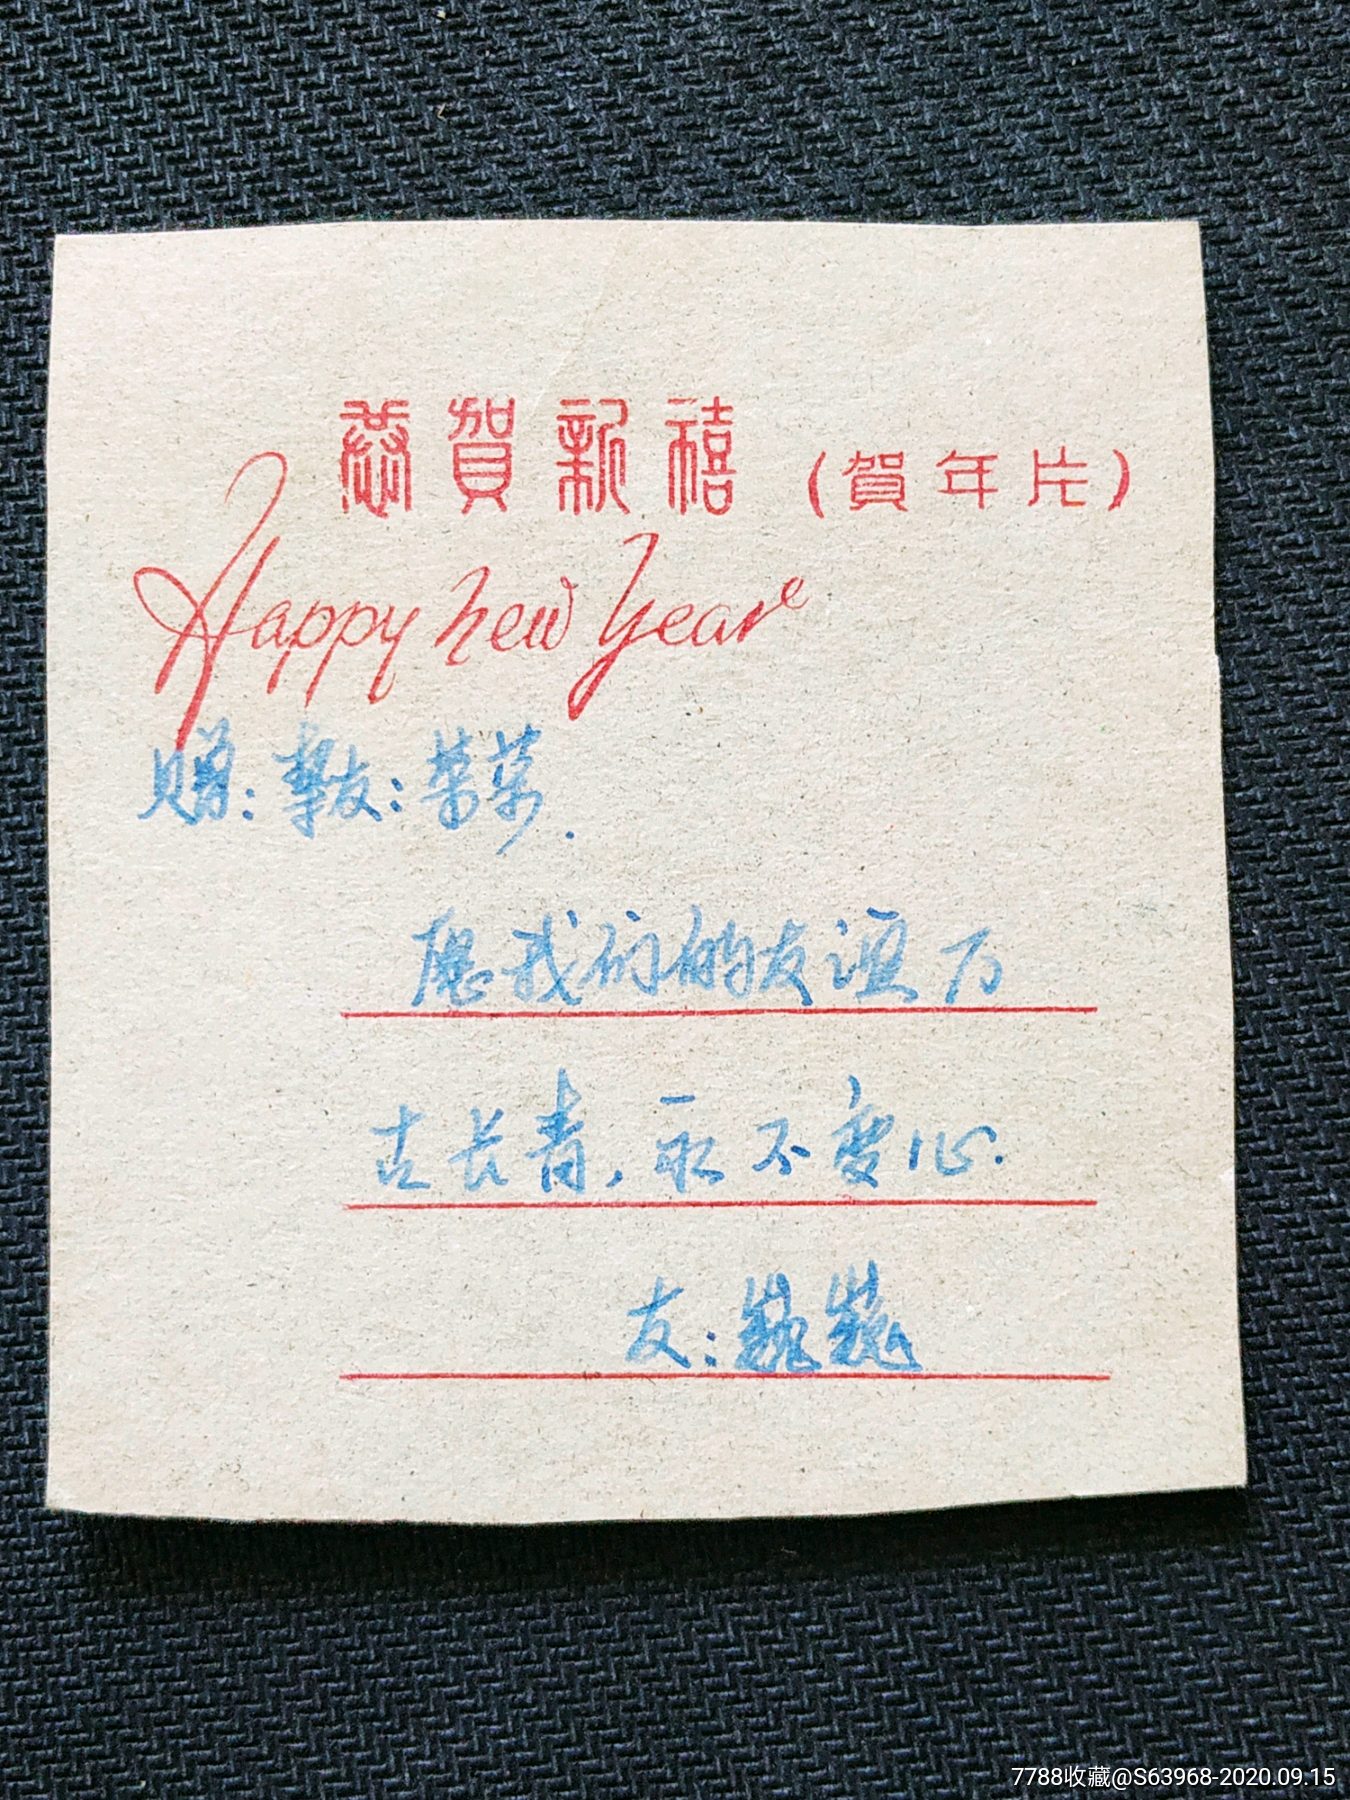 恭賀新禧（賀年片）
Happy new Year
赠：挚友：荣荣.
愿我们的友谊万
古长青，永不变心.
友：巍巍
7788收藏@S63968-2020.09.15